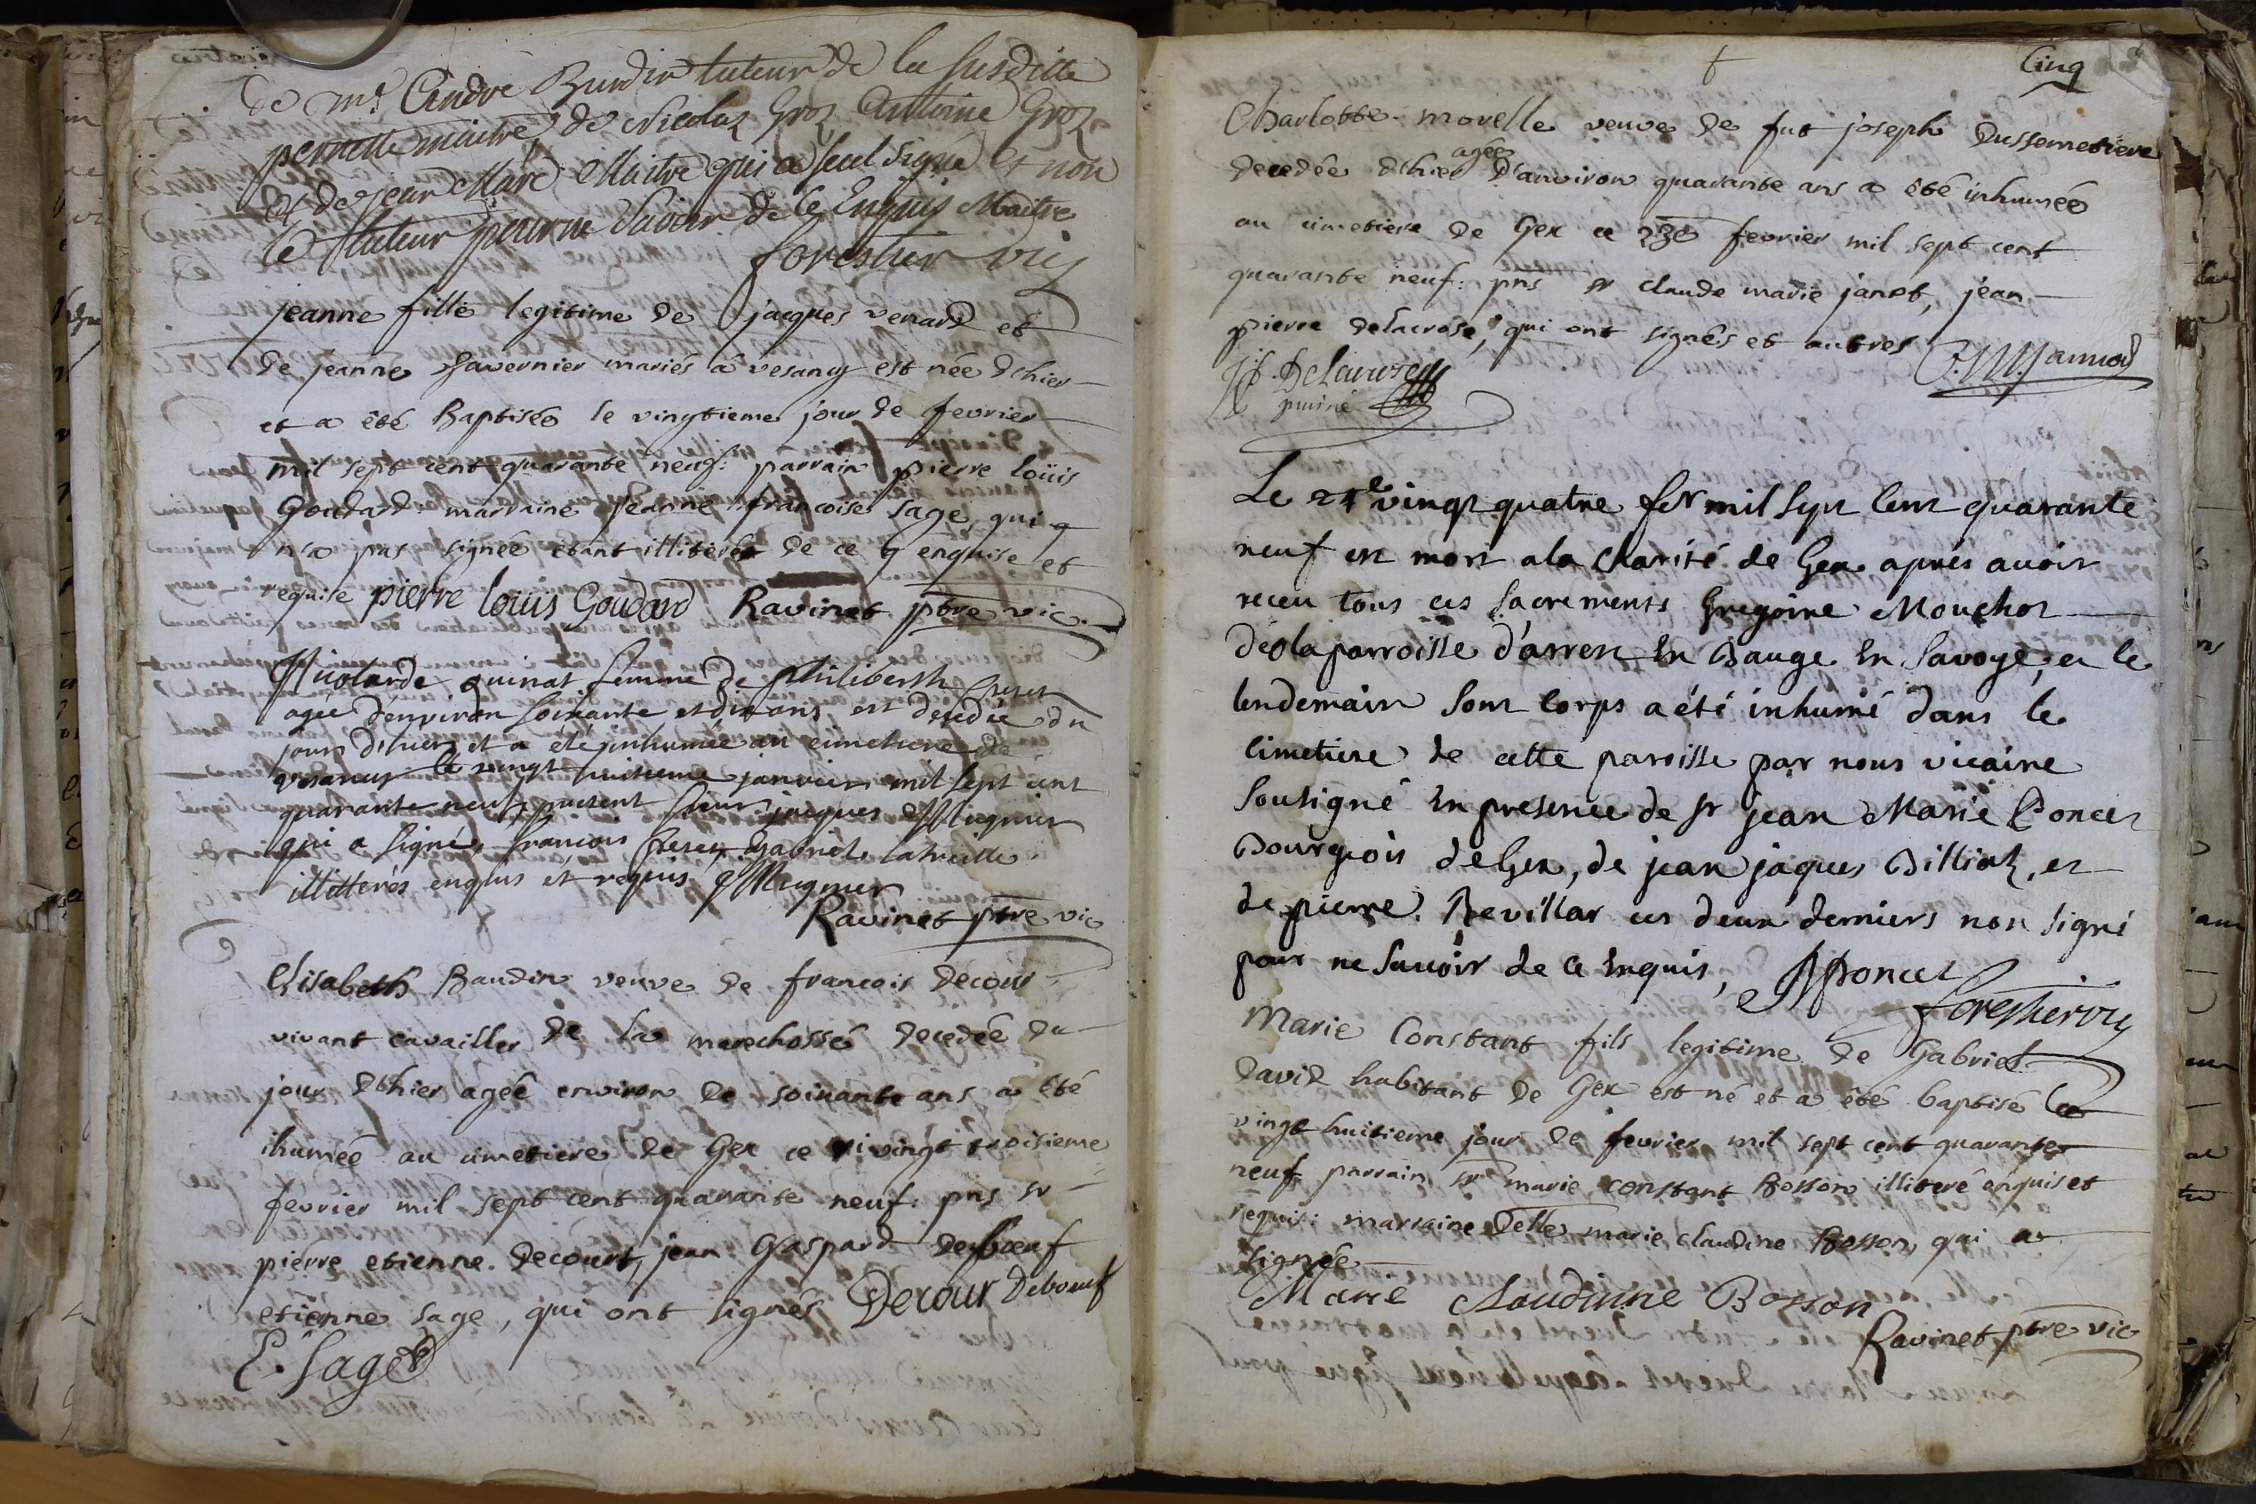 de mr. Andre Baudin tuteur de la susditte
pernette maitre, de Nicolas Groz Antoine Groz
et de jean Marc Maitre qui a seul signé et non
le tuteur pour ne savoir de ce Enquis Maitre
forestier vic
jeanne fille legitime de jacques venard et
de jeanne favernier mariés â vesancy est née dehier
et a êté Baptisée le vingtieme jour de fevrier
mil sept cent quarante neuf: parrain pierre loüis
Goudard marraine jeanne françoise sage, qui
n'a pas signée êtant illiterée de ce enquise et
requise pierre louis Goudard Ravinet ptre vic.
Nicolarde quinat femme de philiberth
agée d'environ soixante et dix ans, est decedée du
jour d'hier et a eté inhumée au cimetiere de
vesancy le vingt huitieme janvier mil sept cent
quarante neuf, present sieur jacques Mugnier
qui a signé, francois Gabriel
illitterés enquis et requis Mugnier
Ravinet ptre vic
Elisabeth Baudin veuve de françois Decour
vivant cavailler de la marechossé decedée du
jour d'hier agée environ de soixante ans a êté
ihumée au cimetiere de Gex ce vingt troisieme
fevrier mil sept cent quarante neuf: pns sr
pierre etienne Decourt, jean Gaspard Deboeuf
etienne sage, qui ont signés Decour Deboeuf
E. Sage
Cinq
Charlotte morelle veuve de fut joseph Dussometiere
decedée d'hier agée d'anviron quarante ans a êté inhumée
au cimetiere de Gex ce 23e fevrier mil sept cent
quarante neuf: pns sr claude marie janet, jean
pierre delacrose, qui ont signés et autres C.M. Jannod
Delacroze
puiné
Le vingt quatre fer mil sept cent quarante
neuf est mort a la charité de Gex après avoir
receu tous ces sacrements Gregoire Mouchot
de la parroisse d'arrest En Bauge En Savoye, et le
lendemain Sont corps a été inhumé dans le
cimetiere de cette paroisse par nous vicaire
Soutigné En presence de sr jean Marie Poncet
Bourgeois de Gex, de jean jaques Billiat, et
de pierre Revillar ces deux derniers non signé
pour ne Savoir de ce Enquis, Poncet
forestier vic
Marie Constant fils legitime de Gabriel
David habitant de Gex est né et a êté baptisé le
vingt huitieme jour de fevrier mil sept cent quarante
neuf, parrain sr marie constant Bosson illiteré enquis et
requis: marraine Delle marie claudine Bosson, qui a
signée
Marie Cloudinne Bosson
Ravinet ptre vic